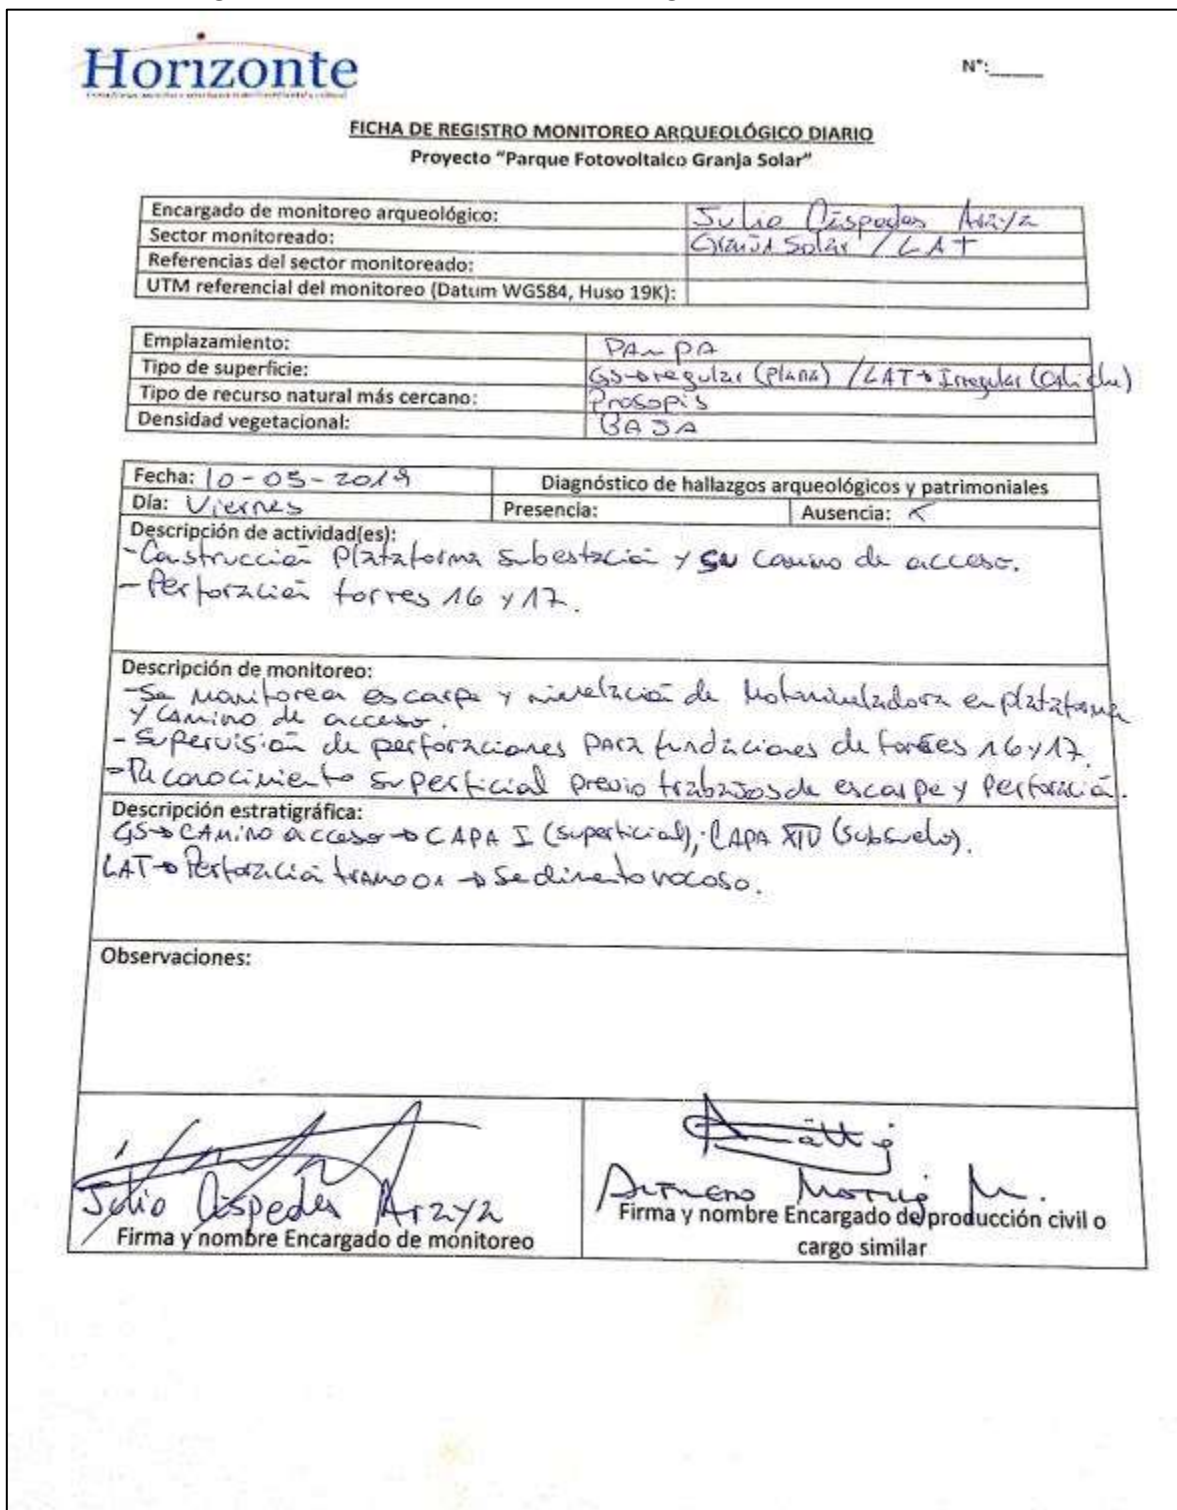 Horizonte
N°:_____
FICHA DE REGISTRO MONITOREO ARQUEOLÓGICO DIARIO
Proyecto "Parque Fotovoltaico Granja Solar"
Encargado de monitoreo arqueológico: Julio Céspedes Araya
Sector monitoreado: Granja Solar / LAT
Referencias del sector monitoreado:
UTM referencial del monitoreo (Datum WGS84, Huso 19K):
Emplazamiento: PAMPA
Tipo de superficie: GS→regular (plana) / LAT→Irregular (Caliche)
Tipo de recurso natural más cercano: Prosopis
Densidad vegetacional: BAJA
Fecha: 10-05-2019 Diagnóstico de hallazgos arqueológicos y patrimoniales
Día: Viernes Presencia: Ausencia: X
Descripción de actividad(es):
-Construcción Plataforma subestación y su camino de acceso.
-Perforación torres 16 y 17.
Descripción de monitoreo:
-Se monitorea escarpe y nivelación de Motoniveladora en plataforma
y camino de acceso.
-Supervisión de perforaciones para fundaciones de torres 16 y 17.
-Reconocimiento superficial previo trabajos de escarpe y Perforación.
Descripción estratigráfica:
GS→Camino acceso→CAPA I (superficial); CAPA (subsuelo).
LAT→Perforación tramo 01→Sedimento rocoso.
Observaciones:
Julio Céspedes Araya
Firma y nombre Encargado de monitoreo
M.
Firma y nombre Encargado de producción civil o
cargo similar